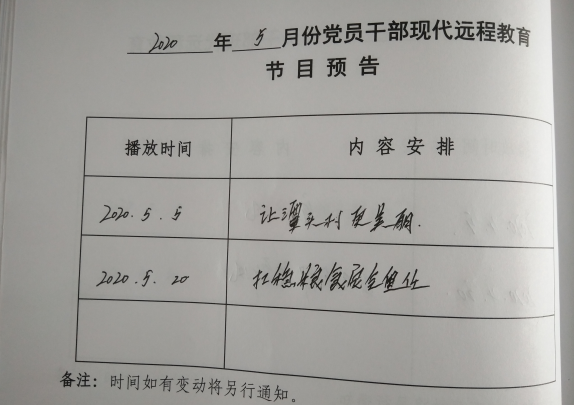 2020 年 5 月份党员干部现代远程教育
节目预告
播放时间 内容安排
2020.5.5 让潭头村更美丽.
2020.5.20 扛稳粮食安全重任
备注：时间如有变动将另行通知。